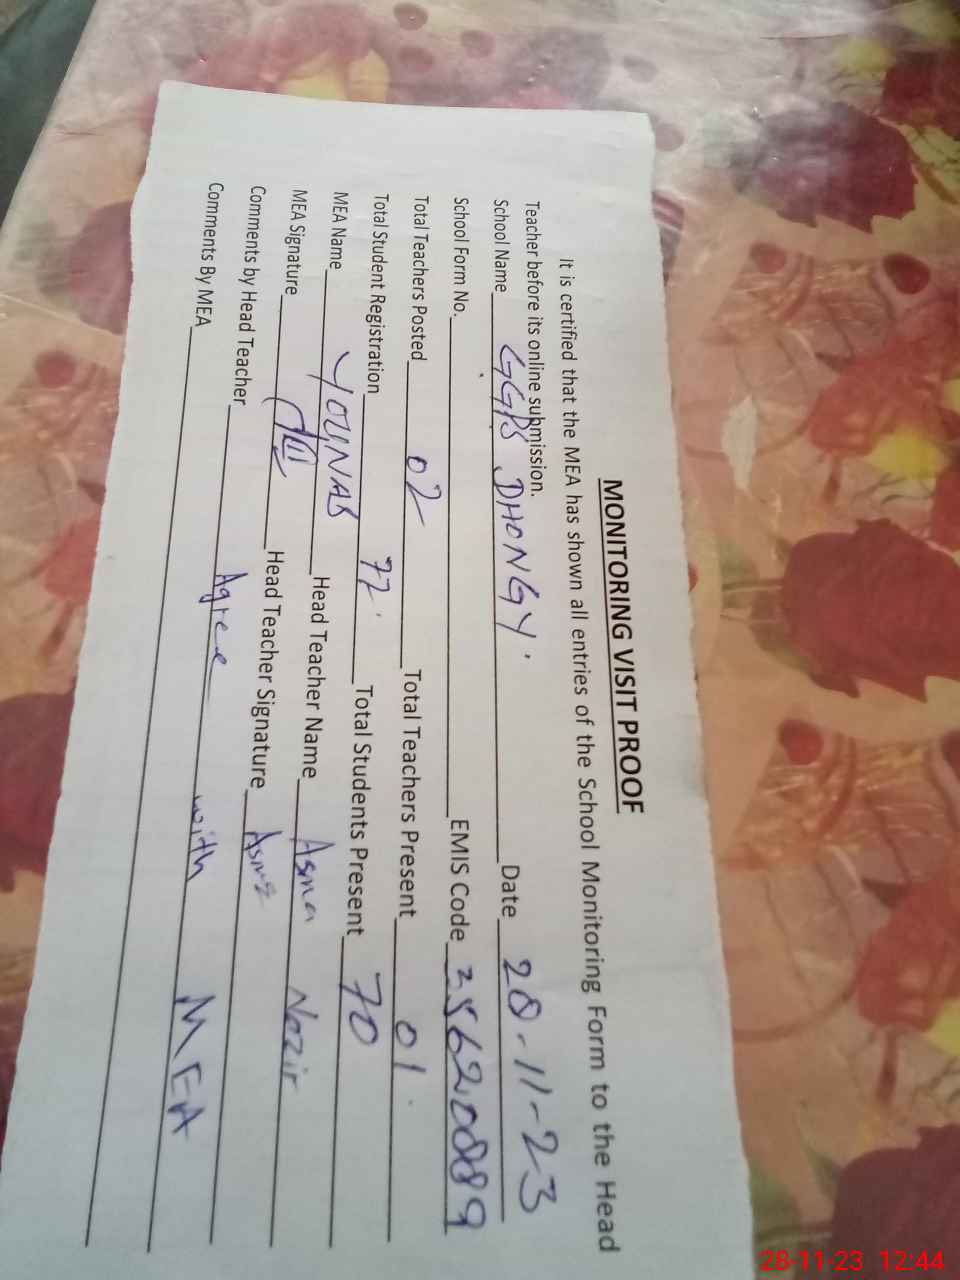 MONITORING VISIT PROOF
It is certified that the MEA has shown all entries of the School Monitoring Form to the Head
Teacher before its online submission.
School Name GGPS DHONGY. Date 28-11-23
School Form No. EMIS Code 35620889
Total Teachers Posted 02 Total Teachers Present 01.
Total Student Registration 72. Total Students Present 70
MEA Name YOUNAS Head Teacher Name Asma Nazir
MEA Signature Head Teacher Signature Asma
Comments by Head Teacher Agree with MEA
Comments By MEA
28-11-23 12:44